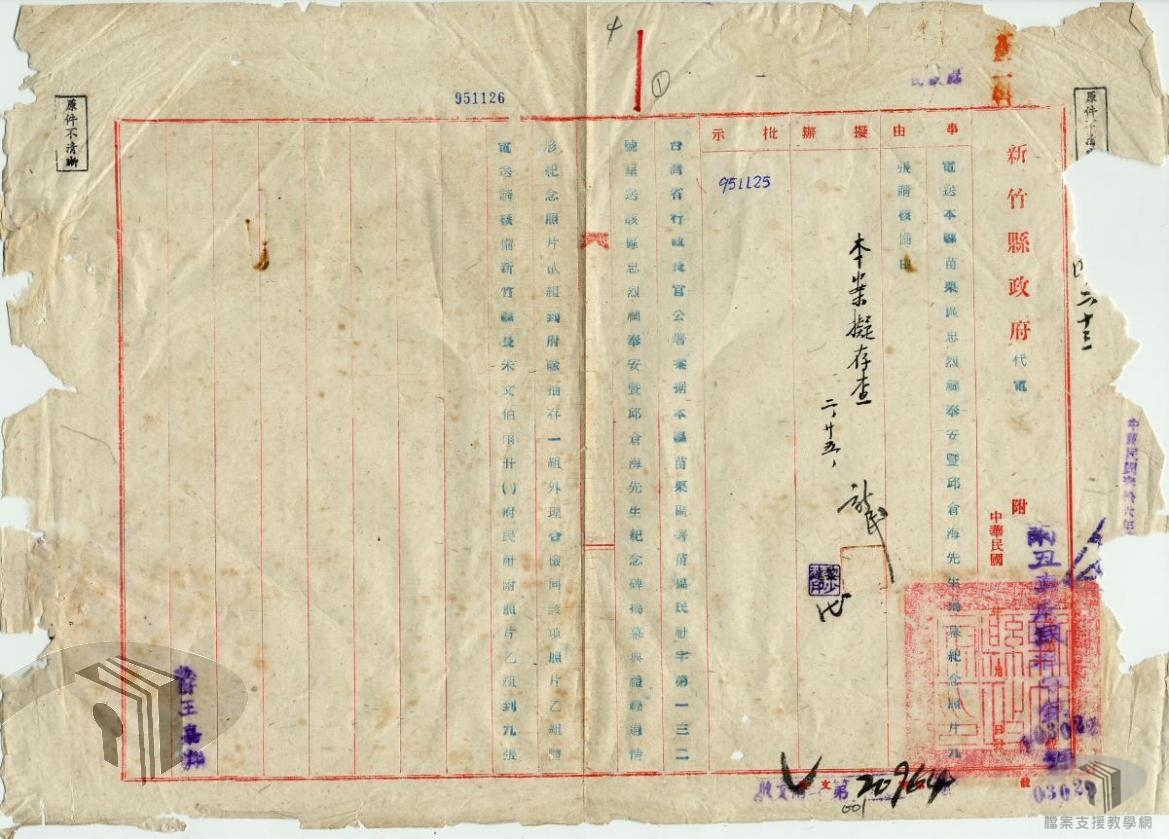 新竹縣政府代電
附
中華民國
年 月 日
號
事由
擬辦
批示
電送本縣苗栗區忠烈祠奉安暨邱倉海先生揭幕紀念照片九
張請核備由
本案擬存查
二、廿五、
951125
台灣省行政長官公署案據本縣苗栗區署苗僵民社字第一三二
號呈送該區忠烈祠奉安暨邱倉海先生紀念碑揭幕典禮經過情
形紀念照片貳組到府除抽存一組外理合檢同該項照片乙組隨
電送請核備新竹縣長朱文伯丙廿()府民附附照片乙組到九張
951126
4
①
原件不清晰
原件不清
二十三
中華民國
收文
第
20964
001
03029
王嘉
檔案支援教學網